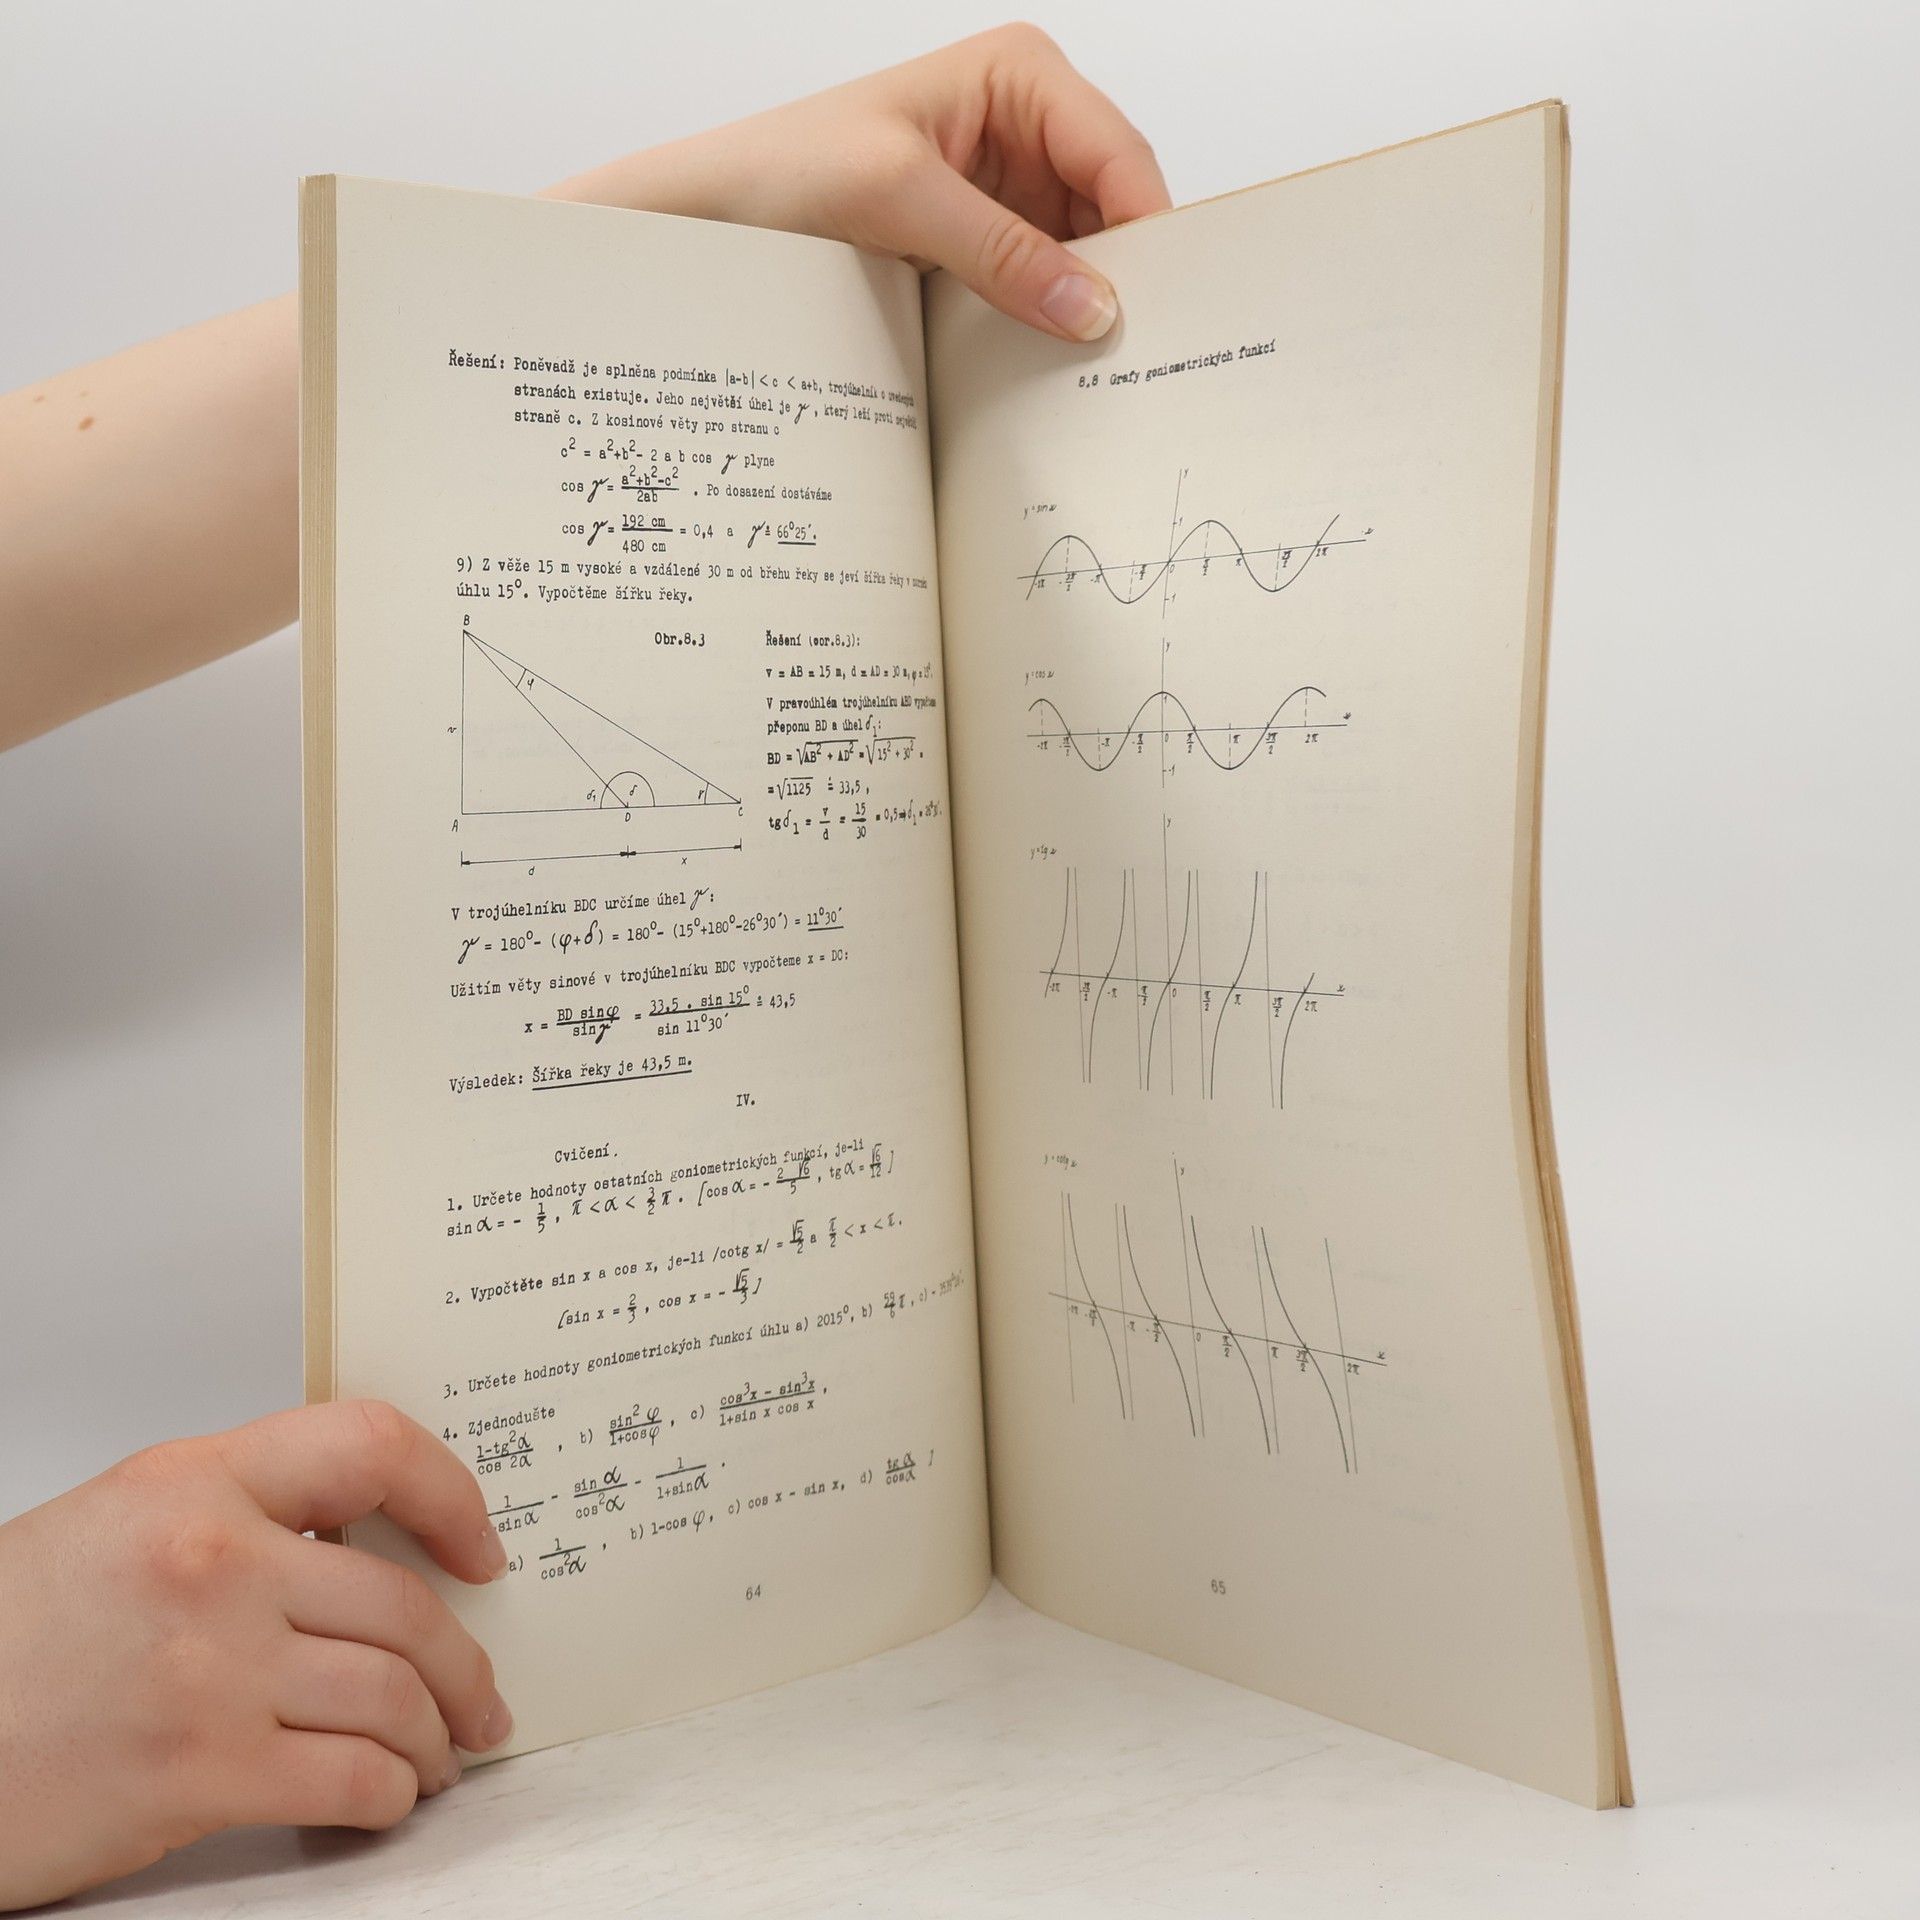 Řešení: Poněvadž je splněna podmínka |a-b| < c < a+b, trojúhelník o uvedených
stranách existuje. Jeho největší úhel je γ, který leží proti největší
straně c. Z kosinové věty pro stranu c
c² = a²+b²- 2 a b cos γ plyne
cos γ = a²+b²-c² / 2ab . Po dosazení dostáváme
cos γ = 192 cm / 480 cm = 0,4 a γ ≐ 66°25´.
9) Z věže 15 m vysoké a vzdálené 30 m od břehu řeky se jeví šířka řeky v
úhlu 15°. Vypočtěme šířku řeky.
B
Obr.8.3
φ
v
δ₁ δ γ
A D C
d x
Řešení (obr.8.3):
v = AB = 15 m, d = AD = 30 m, φ = 15°.
V pravoúhlém trojúhelníku ABD vypočteme
přeponu BD a úhel δ₁:
BD = √AB² + AD² = √15² + 30² =
= √1125 ≐ 33,5 ,
tg δ₁ = v/d = 15/30 = 0,5 ⇒ δ₁ = 26°30´.
V trojúhelníku BDC určíme úhel γ:
γ = 180°- (φ+δ) = 180°- (15°+180°-26°30´) = 11°30´
Užitím věty sinové v trojúhelníku BDC vypočteme x = DC:
x = BD sin φ / sin γ = 33,5 . sin 15° / sin 11°30´ ≐ 43,5
Výsledek: Šířka řeky je 43,5 m.
IV.
Cvičení.
1. Určete hodnoty ostatních goniometrických funkcí, je-li
sin α = - 1/5 , π < α < 3/2 π . [cos α = - 2 √6/5 , tg α = √6/12 ]
2. Vypočtěte sin x a cos x, je-li /cotg x/ = √5/2 a π/2 < x < π.
[sin x = 2/3 , cos x = - √5/3 ]
3. Určete hodnoty goniometrických funkcí úhlu a) 2015°, b) 59/6 π , c)
4. Zjednodušte
1-tg²α / cos 2α , b) sin² φ / 1+cos φ , c) cos³x - sin³x / 1+sin x cos x ,
1 / sin α - sin α / cos²α - 1 / 1+sin α .
a) 1 / cos²α , b) 1-cos φ, c) cos x - sin x, d) tg α / cos α ]
64
8.8 Grafy goniometrických funkcí
y = sin x
y
1
-2π -3π/2 -π -π/2 0 π/2 π 3π/2 2π x
-1
y = cos x
y
1
-2π -3π/2 -π -π/2 0 π/2 π 3π/2 2π x
-1
y = tg x
y
-2π -3π/2 -π -π/2 0 π/2 π 3π/2 2π x
y = cotg x
y
-2π -3π/2 -π -π/2 0 π/2 π 3π/2 2π x
65